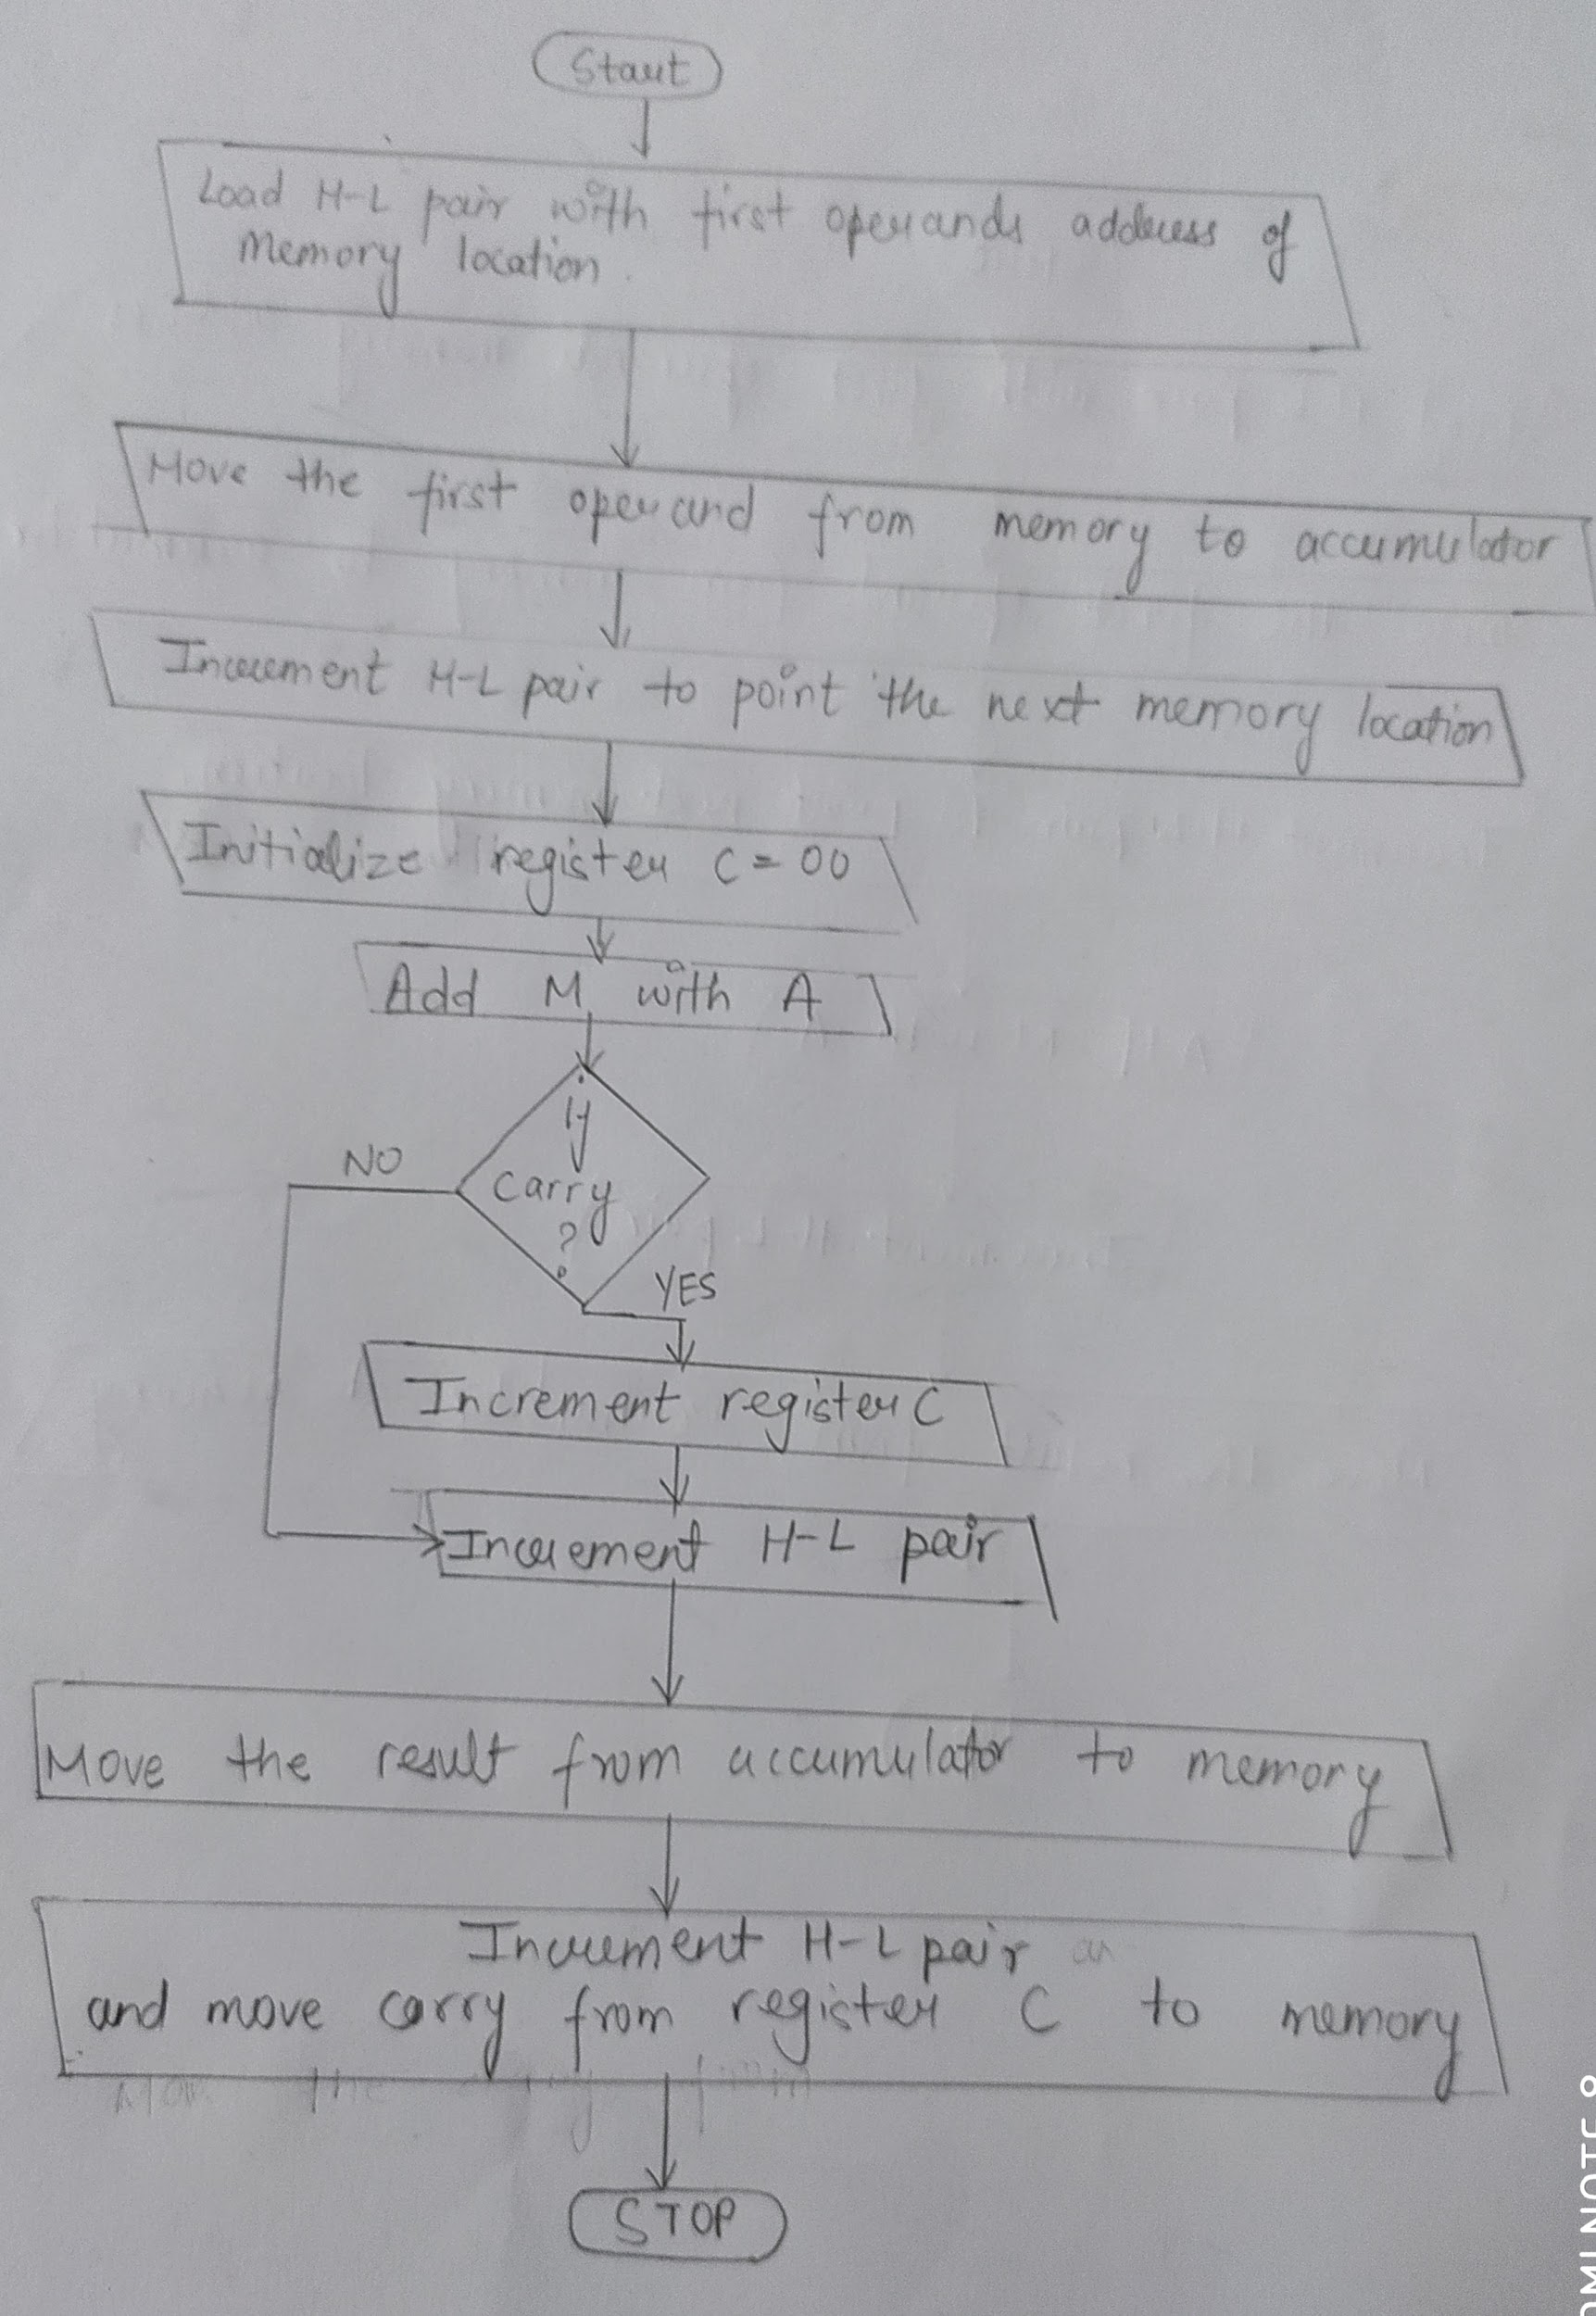 Start
Load H-L pair with first operands address of
Memory location.
Move the first operand from memory to accumulator
Increment H-L pair to point the next memory location
Initialize register C = 00
Add M with A
If
NO
carry
?
YES
Increment register C
Increment H-L pair
Move the result from accumulator to memory
Increment H-L pair
and move carry from register C to memory
STOP